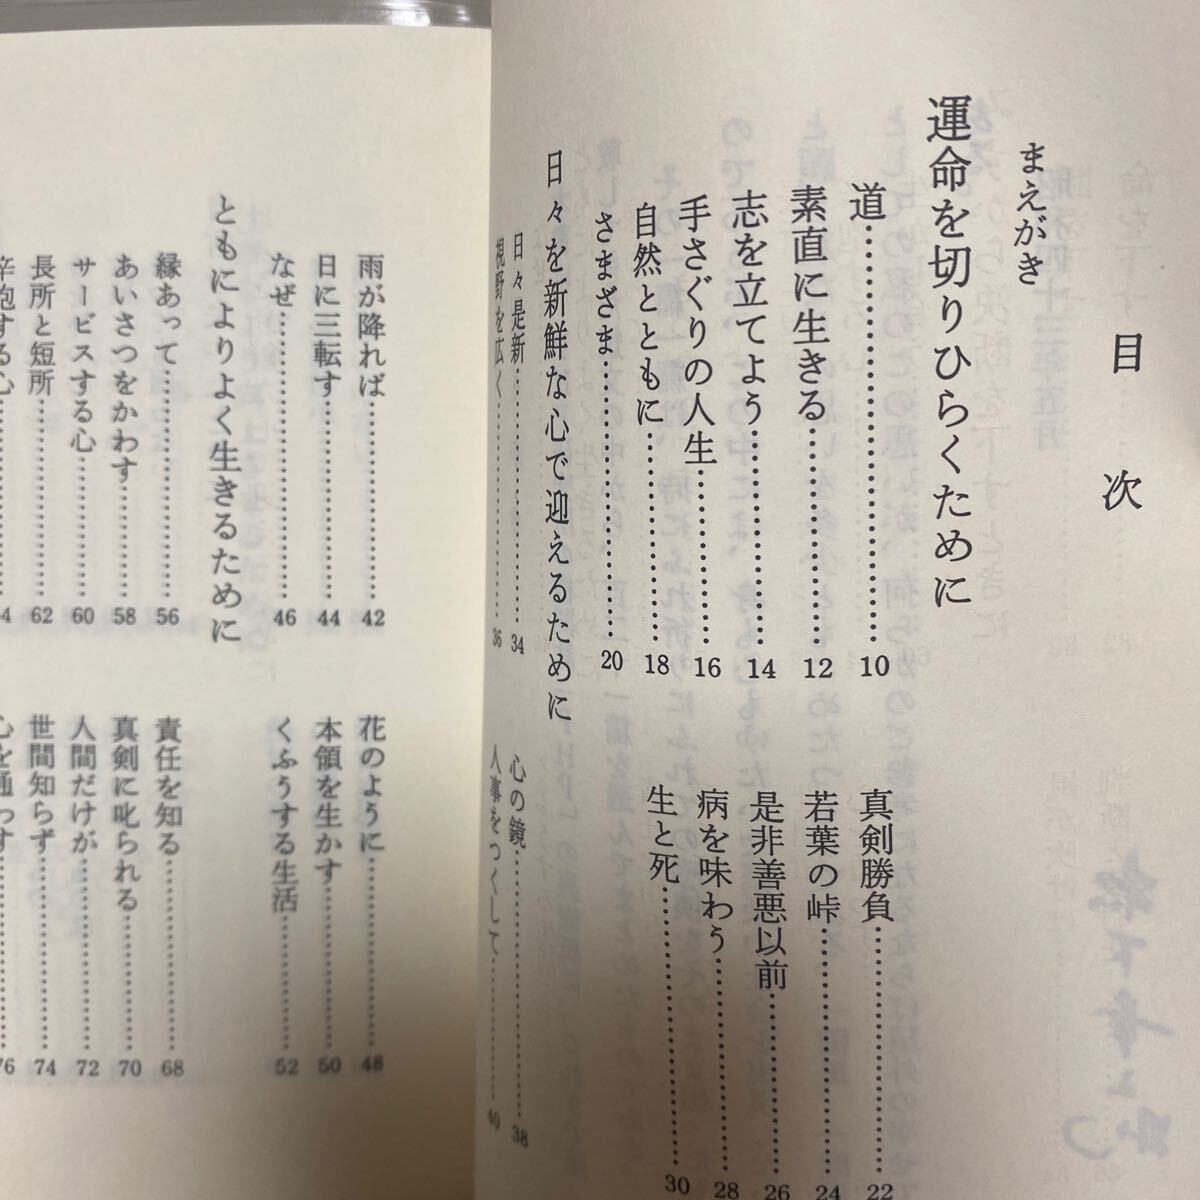 目次
まえがき
運命を切りひらくために
道 10
素直に生きる 12
志を立てよう 14
手さぐりの人生 16
自然とともに 18
さまざま 20
真剣勝負 22
若葉の峠 24
是非善悪以前 26
病を味わう 28
生と死 30
日々を新鮮な心で迎えるために
日々是新 34
視野を広く 36
心の鏡 38
人事をつくして 40
雨が降れば 42
日に三転す 44
なぜ 46
花のように 48
本領を生かす 50
くふうする生活 52
ともによりよく生きるために
縁あって 56
あいさつをかわす 58
サービスする心 60
長所と短所 62
辛抱する心
責任を知る 68
真剣に叱られる 70
人間だけが 72
世間知らず 74
心を通わす 76